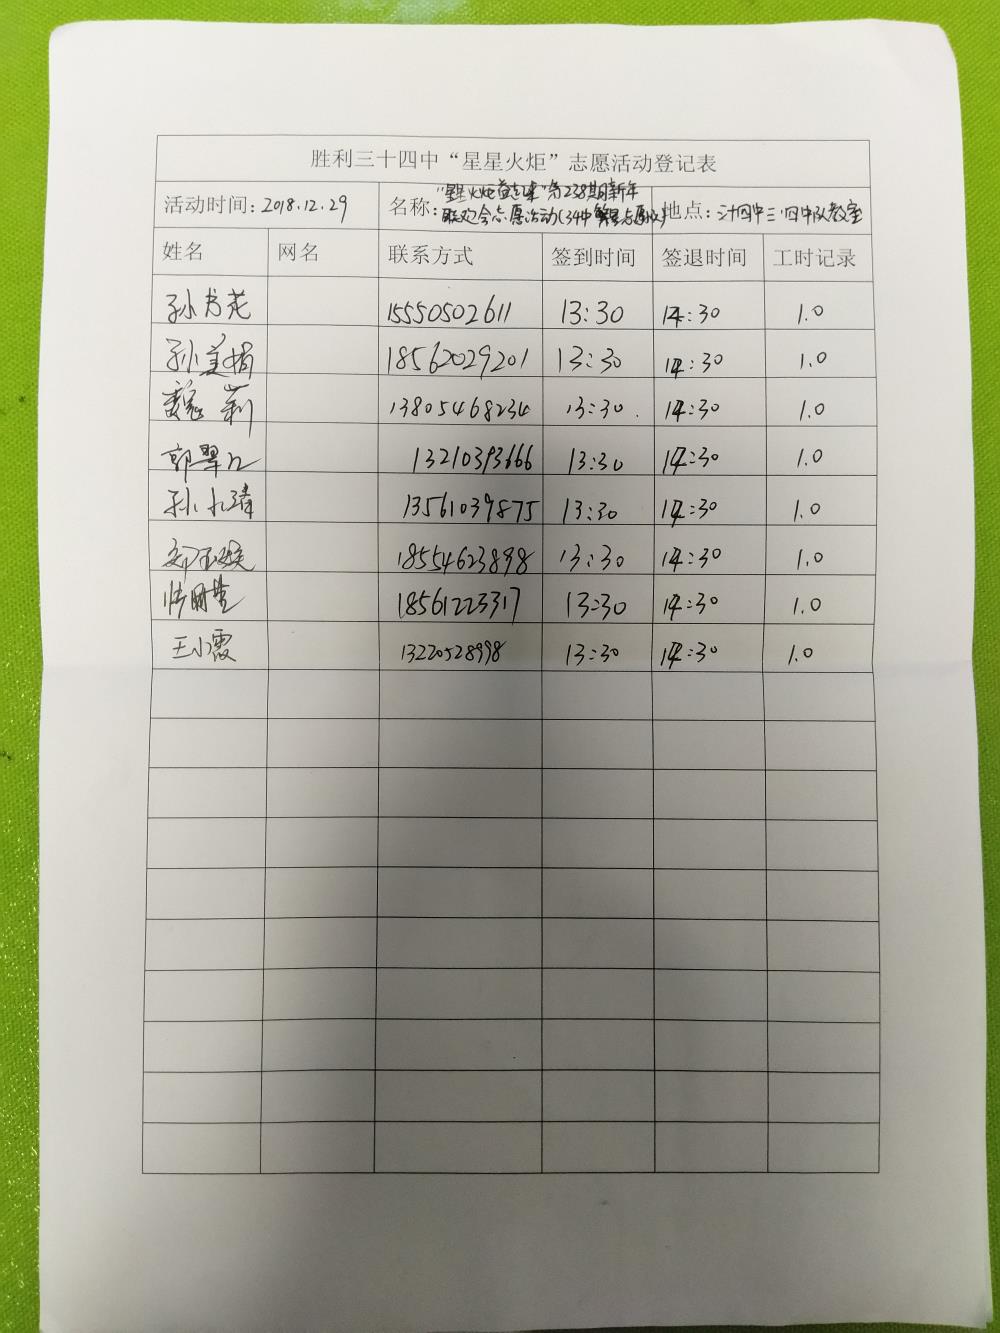 胜利三十四中“星星火炬”志愿活动登记表
活动时间：2018.12.29 名称：“星星火炬益起来”第238期新年联欢会志愿活动(34中繁星志愿队) 地点：三十四中三.四中队教室
姓名 网名 联系方式 签到时间 签退时间 工时记录
孙 15550502611 13:30 14:30 1.0
孙美娟 18562029201 13:30 14:30 1.0
魏莉 13805468234 13:30 14:30 1.0
郭翠 13210393666 13:30 14:30 1.0
孙永清 13561039875 13:30 14:30 1.0
18554623898 13:30 14:30 1.0
18561223317 13:30 14:30 1.0
王小霞 13220528998 13:30 14:30 1.0